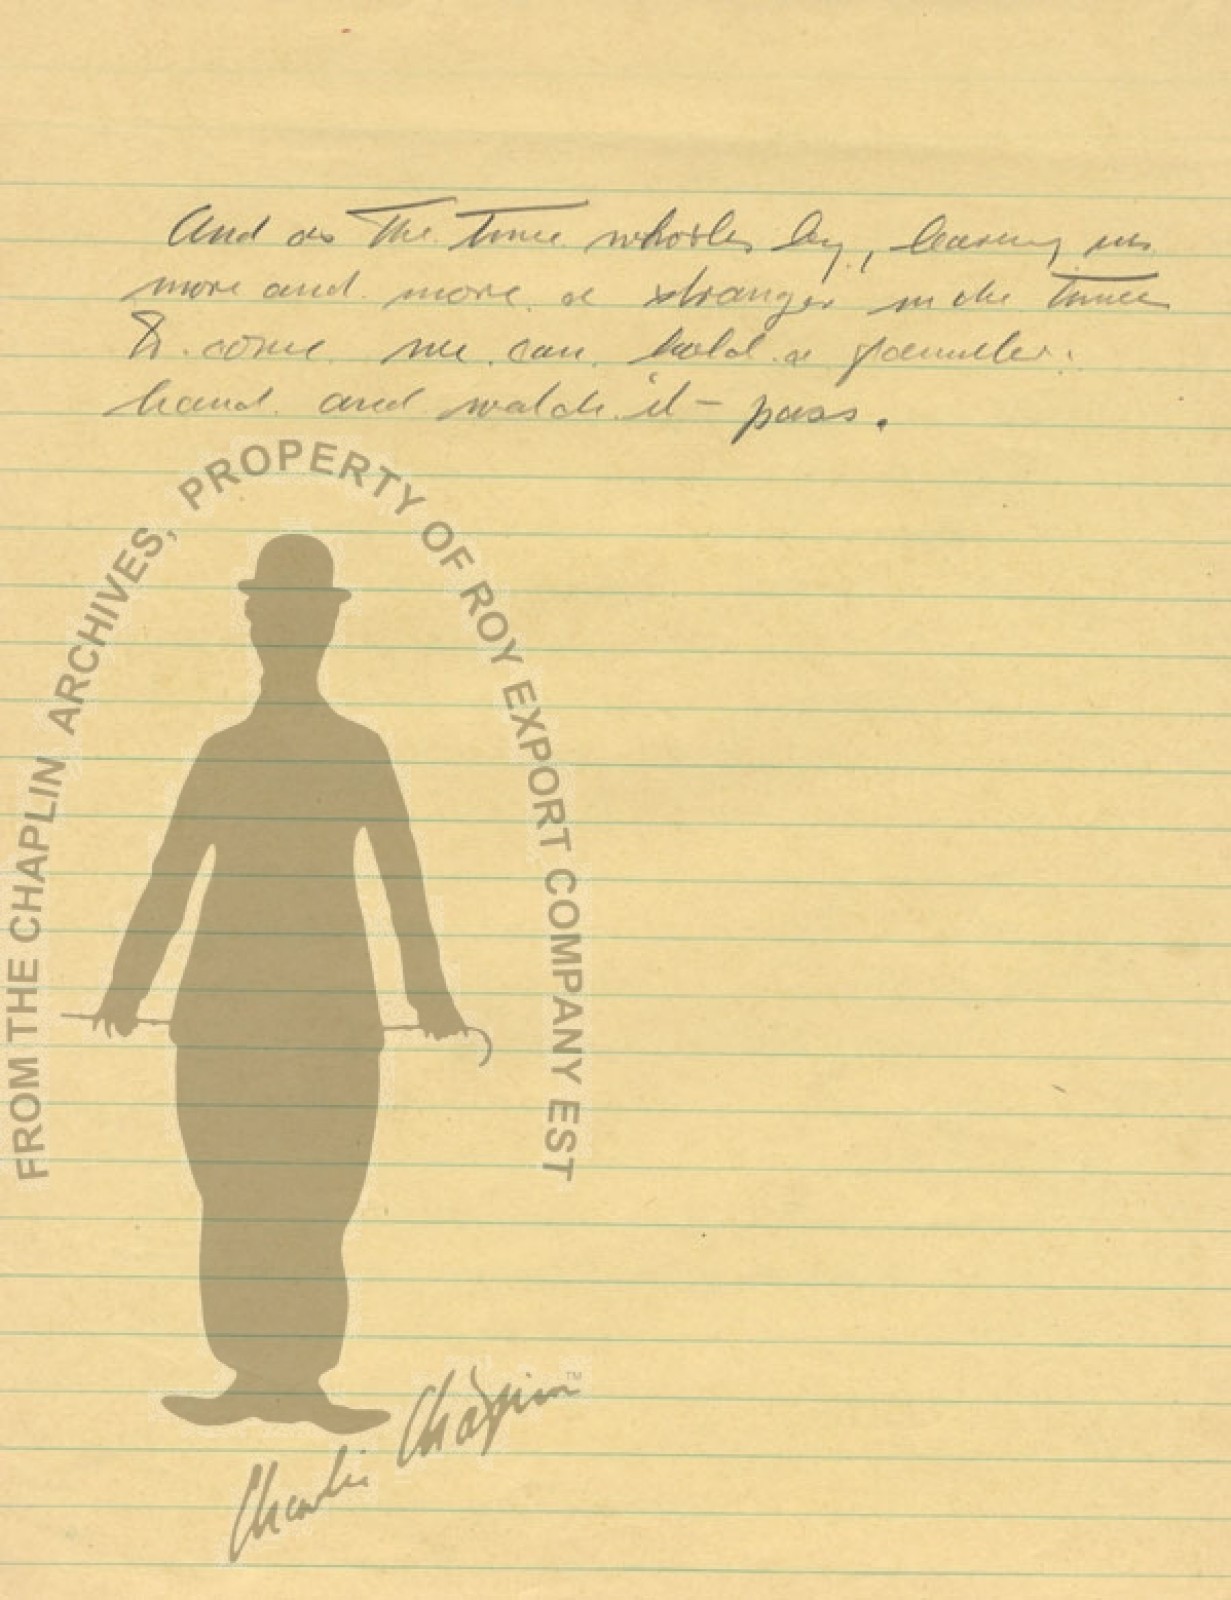 And as the time whistles by, leaving us
more and more a stranger in the times
to come we can hold a
hand and watch it - pass.
FROM THE CHAPLIN ARCHIVES, PROPERTY OF ROY EXPORT COMPANY EST
Charlie Chaplin TM